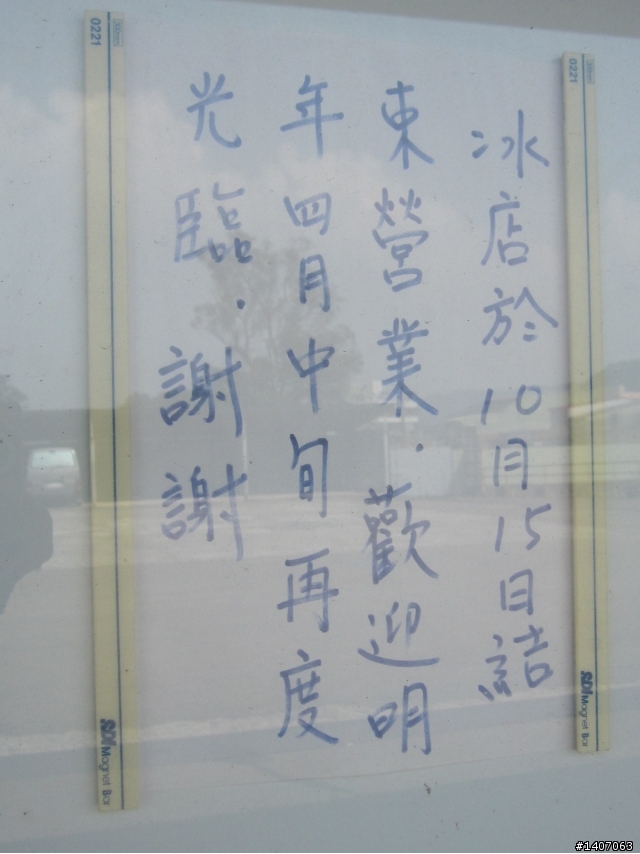 冰店於10月15日結
束營業.歡迎明
年四月中旬再度
光臨.謝謝
0221
SDI Magnet Bar
0221
SDI Magnet Bar
#1407063